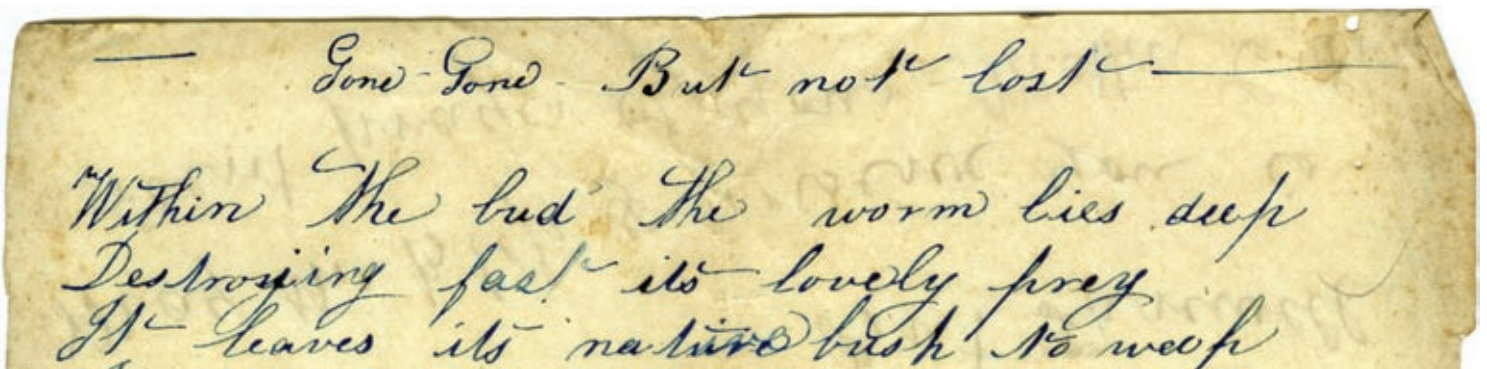 — Gone - Gone - But not lost —
Within the bud the worm lies deep
Destroying fast its lovely prey
It leaves its native bush to weep